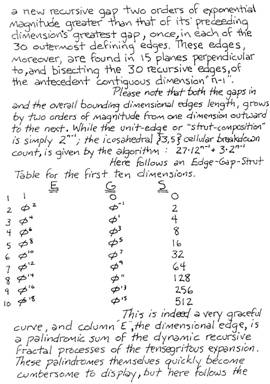 a new recursive gap two orders of exponential
magnitude greater than that of its preceeding
dimension's greatest gap, once, in each of the
30 outermost defining edges. These edges,
moreover, are found in 15 planes perpendicular
to, and bisecting the 30 recursive edges, of
the antecedent contiguous dimension "n-1".
Please note that both the gaps in
and the overall bounding dimensional edges length, grows
by two orders of magnitude from one dimension outward
to the next. While the unit-edge or "strut-composition"
is simply 2ⁿ⁻¹; the icosahedral {3,5} cellular breakdown
count, is given by the algorithm : 27·12ⁿ⁻¹ + 3·2ⁿ⁻¹
Here follows an Edge-Gap-Strut
Table for the first ten dimensions.
E G S
1 1 0 0
2 ø² ø⁻¹ 2
3 ø⁴ ø¹ 4
4 ø⁶ ø³ 8
5 ø⁸ ø⁵ 16
6 ø¹⁰ ø⁷ 32
7 ø¹² ø⁹ 64
8 ø¹⁴ ø¹¹ 128
9 ø¹⁶ ø¹³ 256
10 ø¹⁸ ø¹⁵ 512
This is indeed a very graceful
curve, and column "E", the dimensional edge, is
a palindromic sum of the dynamic recursive
fractal processes of the tensegritous expansion.
These palindromes themselves quickly become
cumbersome to display, but here follows the